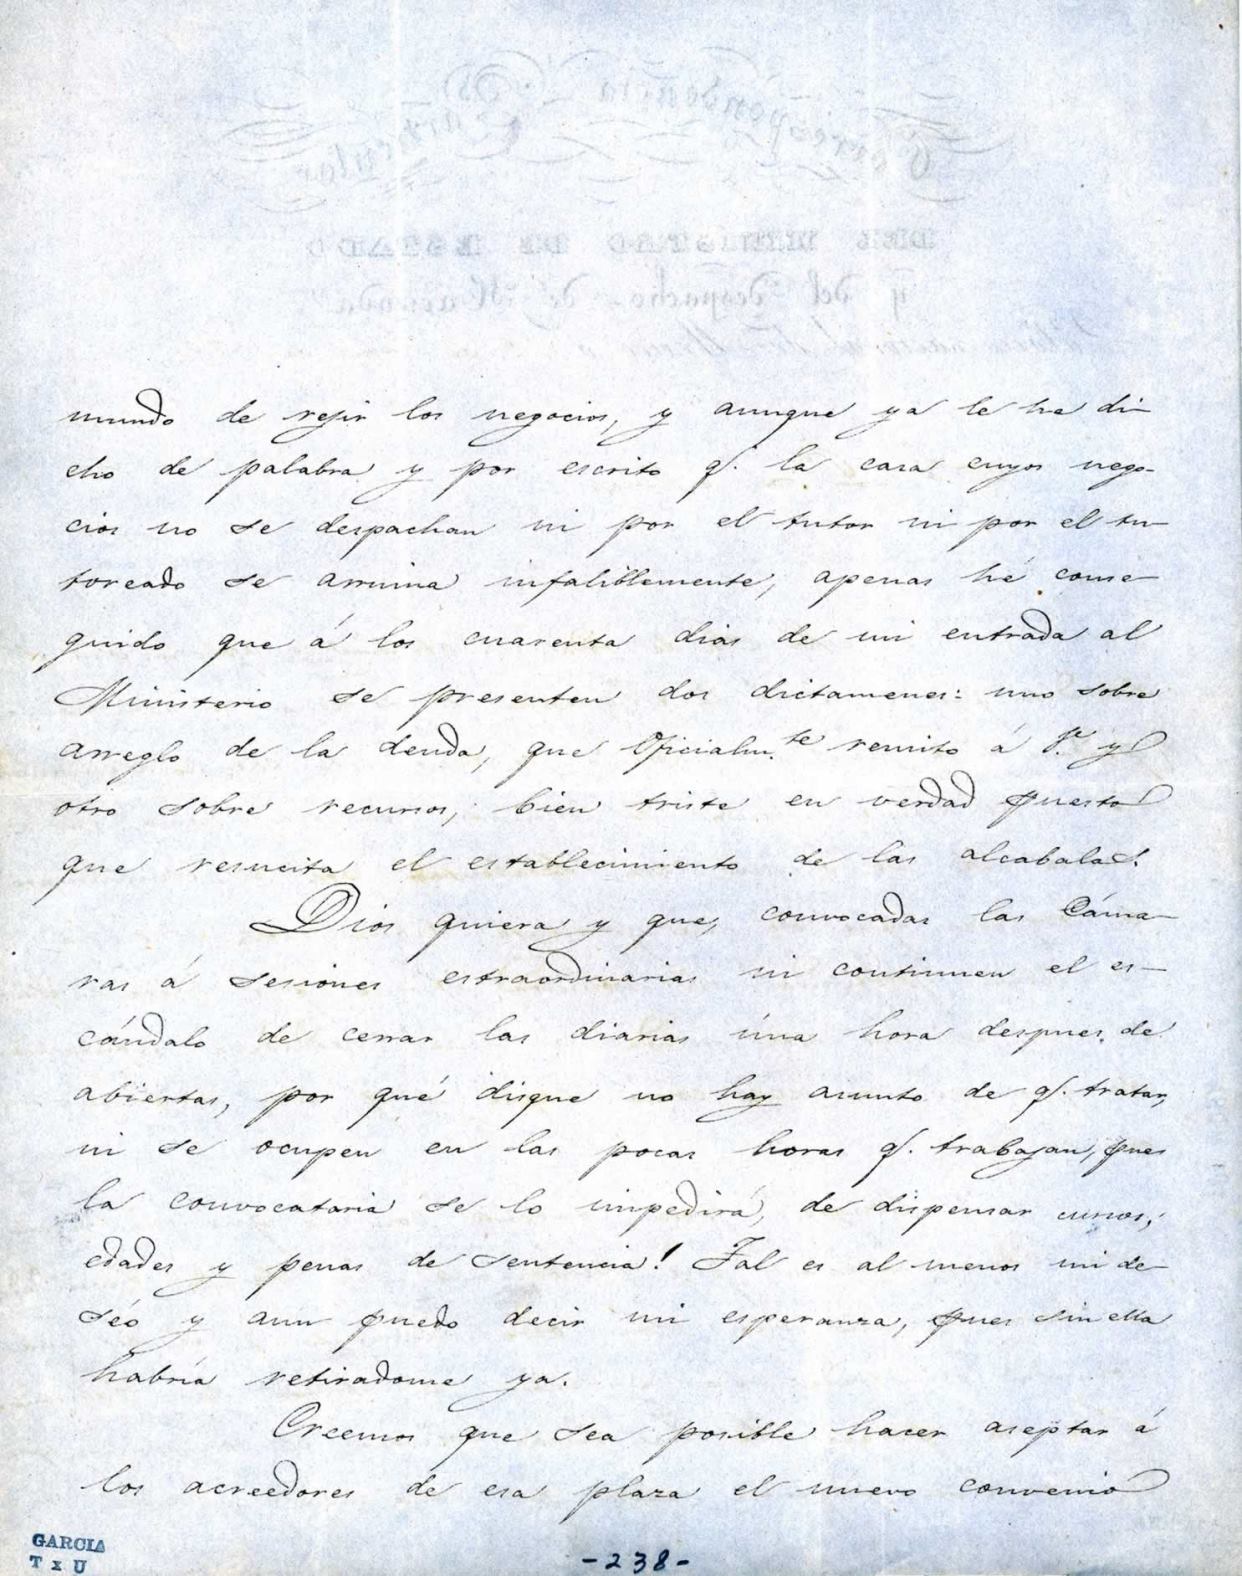 mundo de rejir los negocios, y aunque ya le he di-
cho de palabra y por escrito q. la casa cuyos nego-
cios no se despachan ni por el tutor ni por el tu-
toreado se arruina infaliblemente, apenas hé conse-
guido que á los cuarenta dias de mi entrada al
Ministerio se presenten dos dictamenes: uno sobre
arreglo de la deuda, que Oficialm.te remito á V. y
otro sobre recursos, bien triste en verdad puesto
que resucita el establecimiento de las alcabalas.
Dios quiera y que, convocadas las Cáma-
ras á sesiones estraordinarias ni continuen el es-
cándalo de cerrar las diarias úna hora despues de
abiertas, por qué disque no hay asunto de q. tratar,
ni se ocupen en las pocas horas q. trabajan, pues
la convocataria se lo impedirá, de dispensar cursos,
edades y penas de sentencia! Tal es al menos mi de-
séo y aun puedo decir mi esperanza, pues sin ella
habría retiradome ya.
Creemos que sea posible hacer aseptar á
los acreedores de esa plaza el nuevo convenio
GARCIA
T x U
-238-